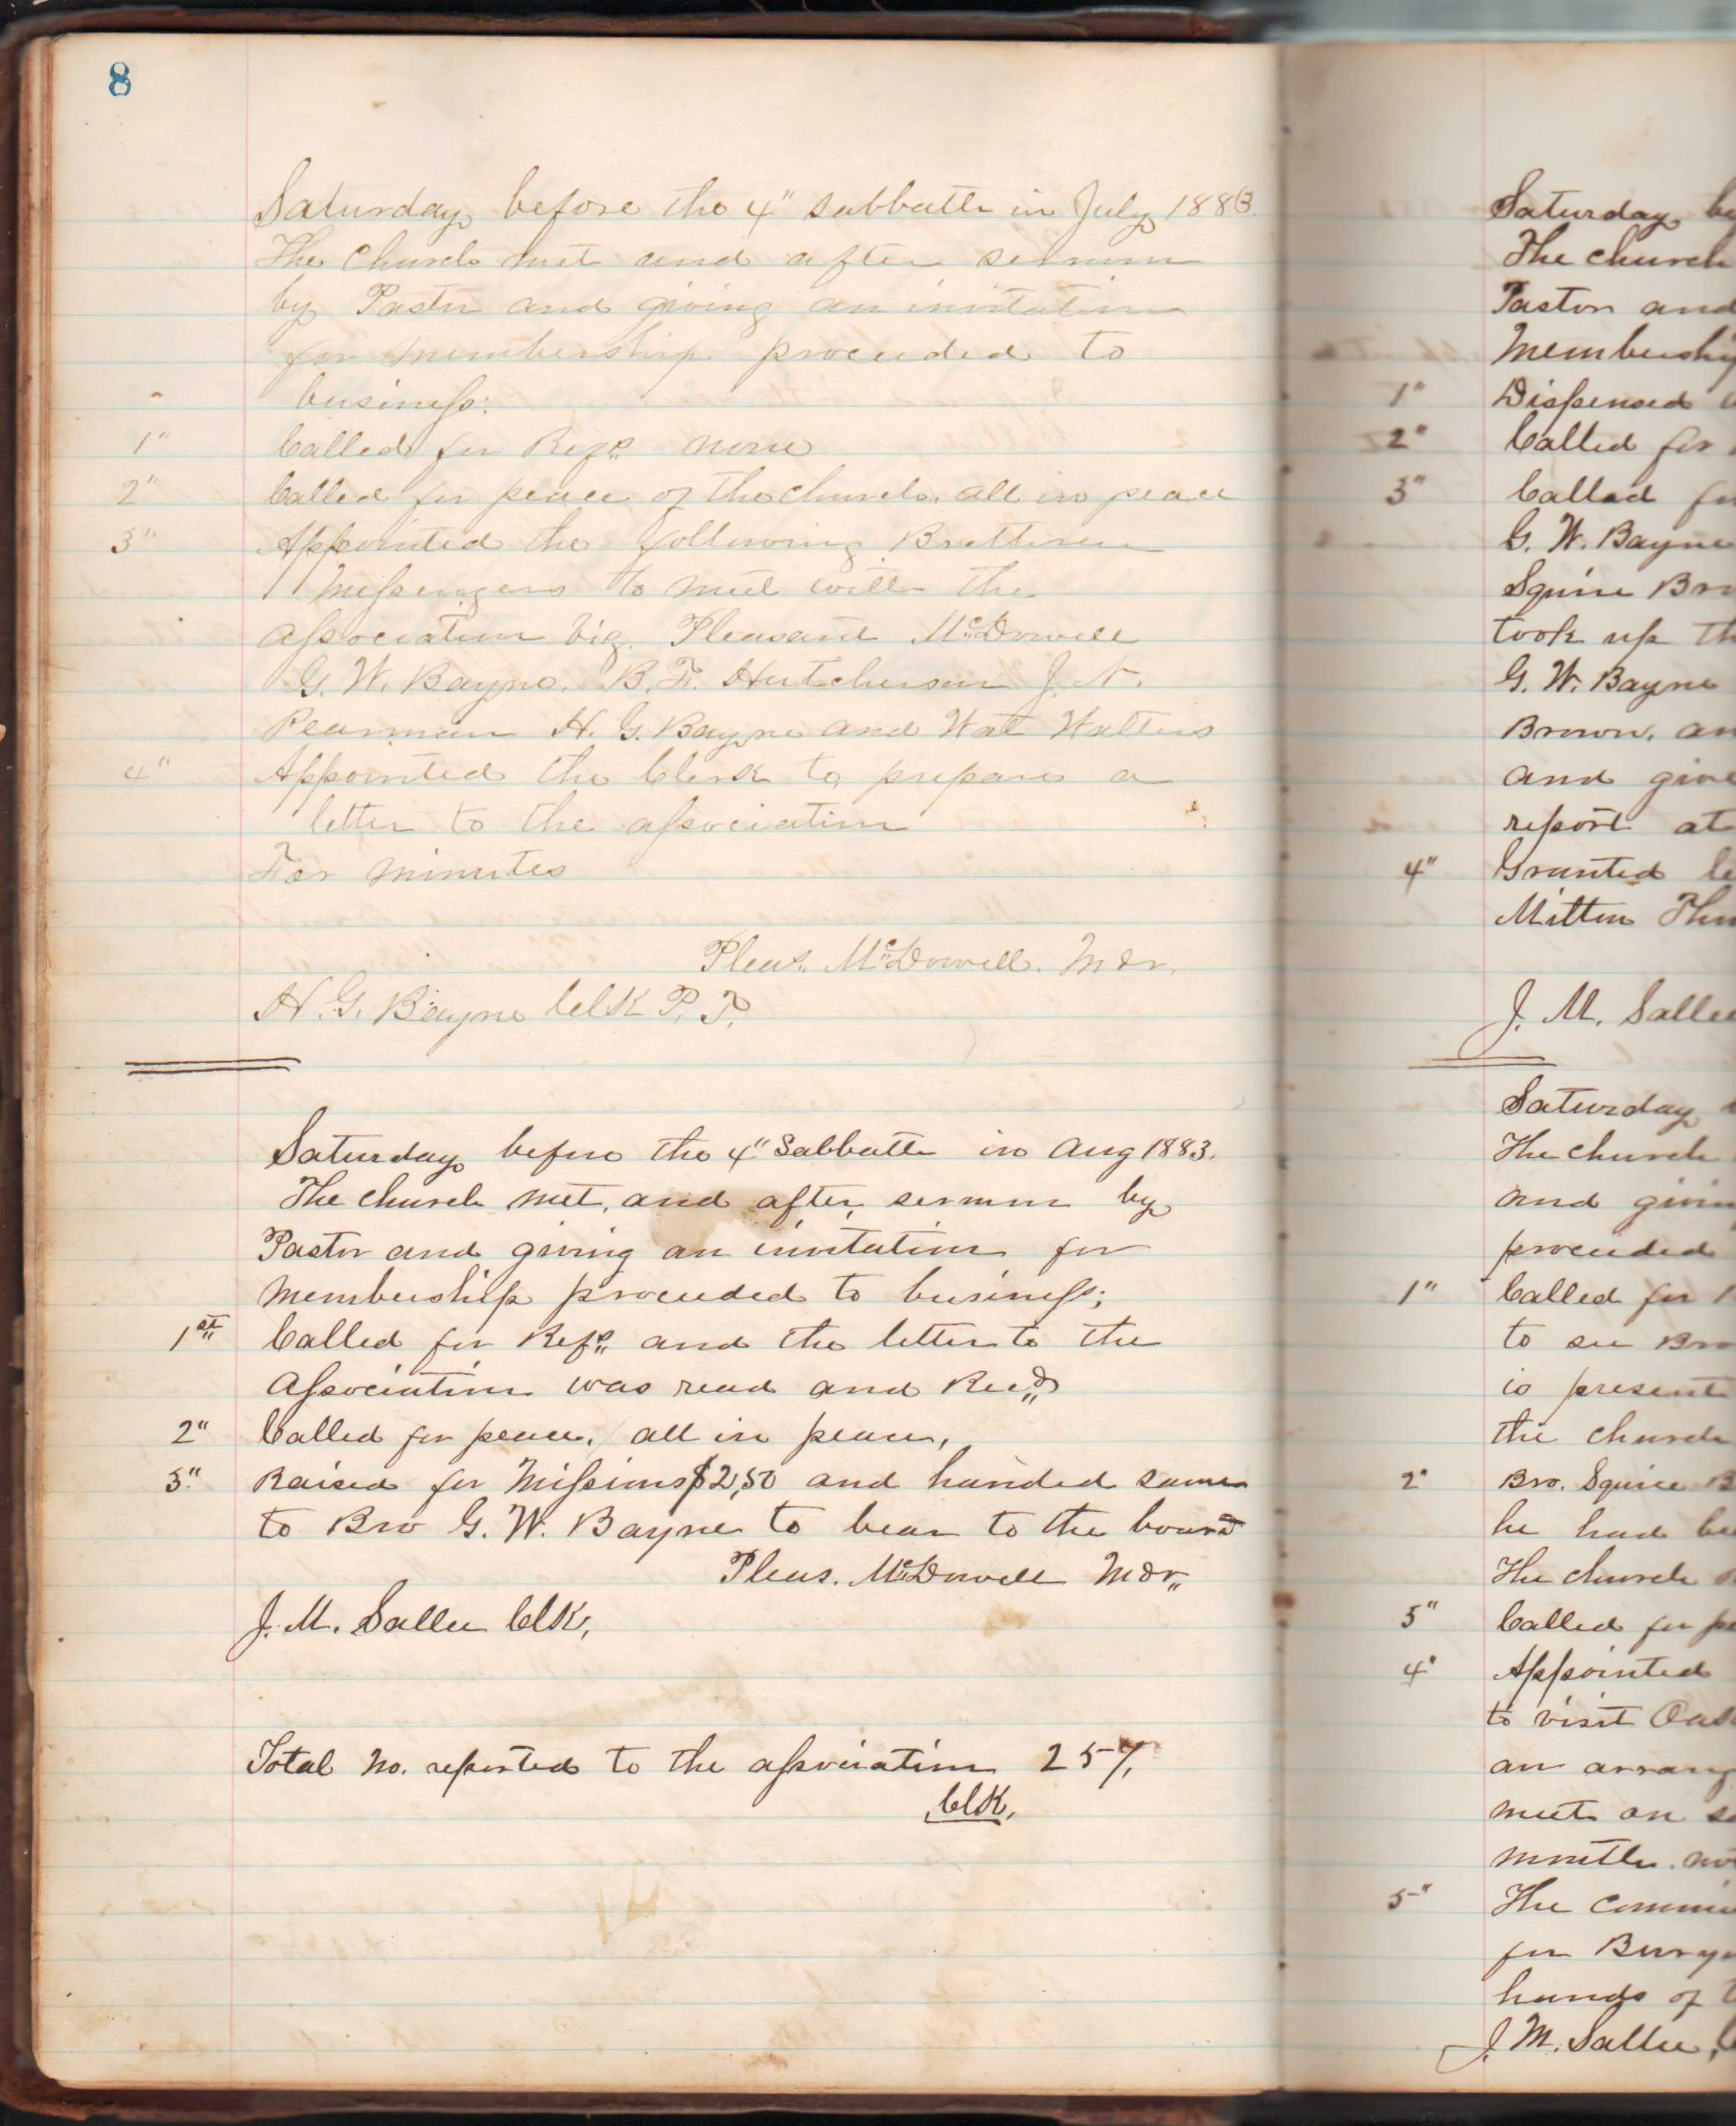 8
Saturday before the 4" Sabbath in July 1883
The Church met and after sermon
by Pastor and giving an invitation
for membership proceeded to
business:
1" Called for Refs none
2" Called for peace of the church. all in peace
3" Appointed the following Bretheren
Messengers to meet with the
Association viz. Pleasant McDowell
G. W. Bayne. B. F. Hutcherson J. N.
Pearman H. G. Bayne and Wat Walters
4" Appointed the Clerk to prepare a
letter to the association
For minutes
Pleas. McDowell. Mdr.
H. G. Bayne Clk P. T.
Saturday before the 4" Sabbath in Aug 1883.
The church met, and after sermon by
Pastor and giving an invitation for
membership proceeded to business;
1st Called for Refs and the letter to the
Association was read and Recd
2" Called for peace, all in peace,
3" Raised for Missions $2,50 and handed same
to Bro G. W. Bayne to bear to the board
Pleas. McDowell Mdr
J. M. Sallee Clk,
Total no. reported to the association 257,
Clk,
Saturday be
The church
Pastor and
Membership
1" Dispensed
2" Called for
3" Called for
G. W. Bayne
Squire Bro
took up th
G. W. Bayne
Brown, an
and give
report at
4" Granted le
Milton
J. M. Sallee
Saturday
The church
and givin
proceeded
1" Called for
to see Bro
is present
the church
2" Bro. Squire B
he had be
The church
3" Called for pe
4" Appointed
to visit
an arrang
meet on s
month.
5" The commi
for BurY
hands of t
J. M. Sallee, C